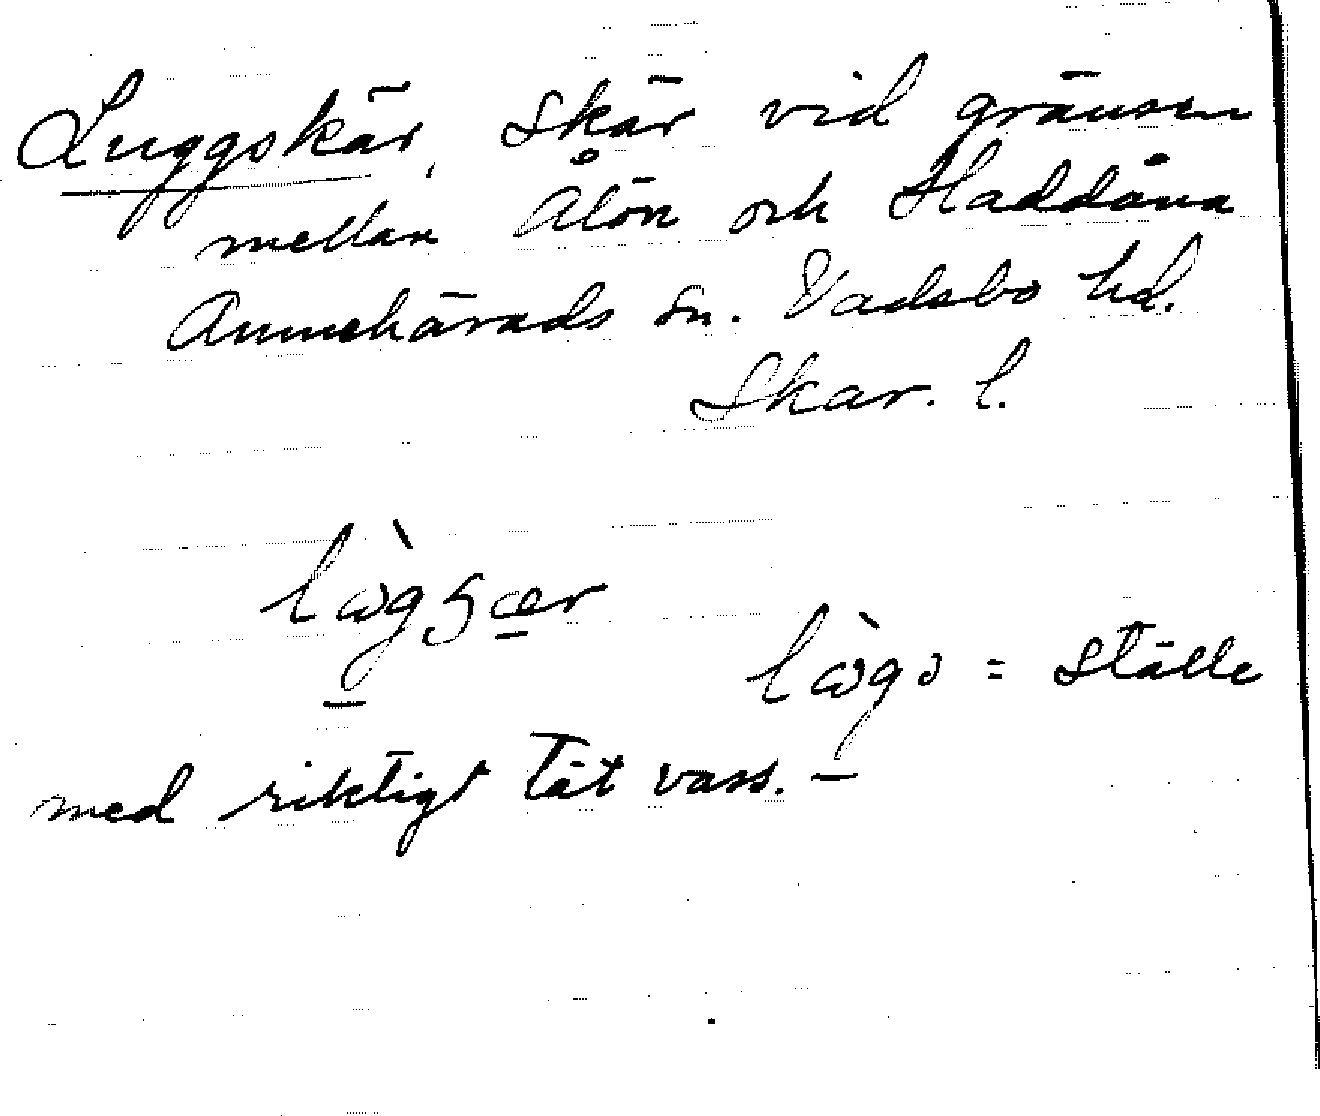 Luggskär, Skär vid gränsen
mellan Ålön och Haddåna
Amnehärads sn. Vadsbo hd.
Skar. l.
= ställe
med riktigt tät vass. –